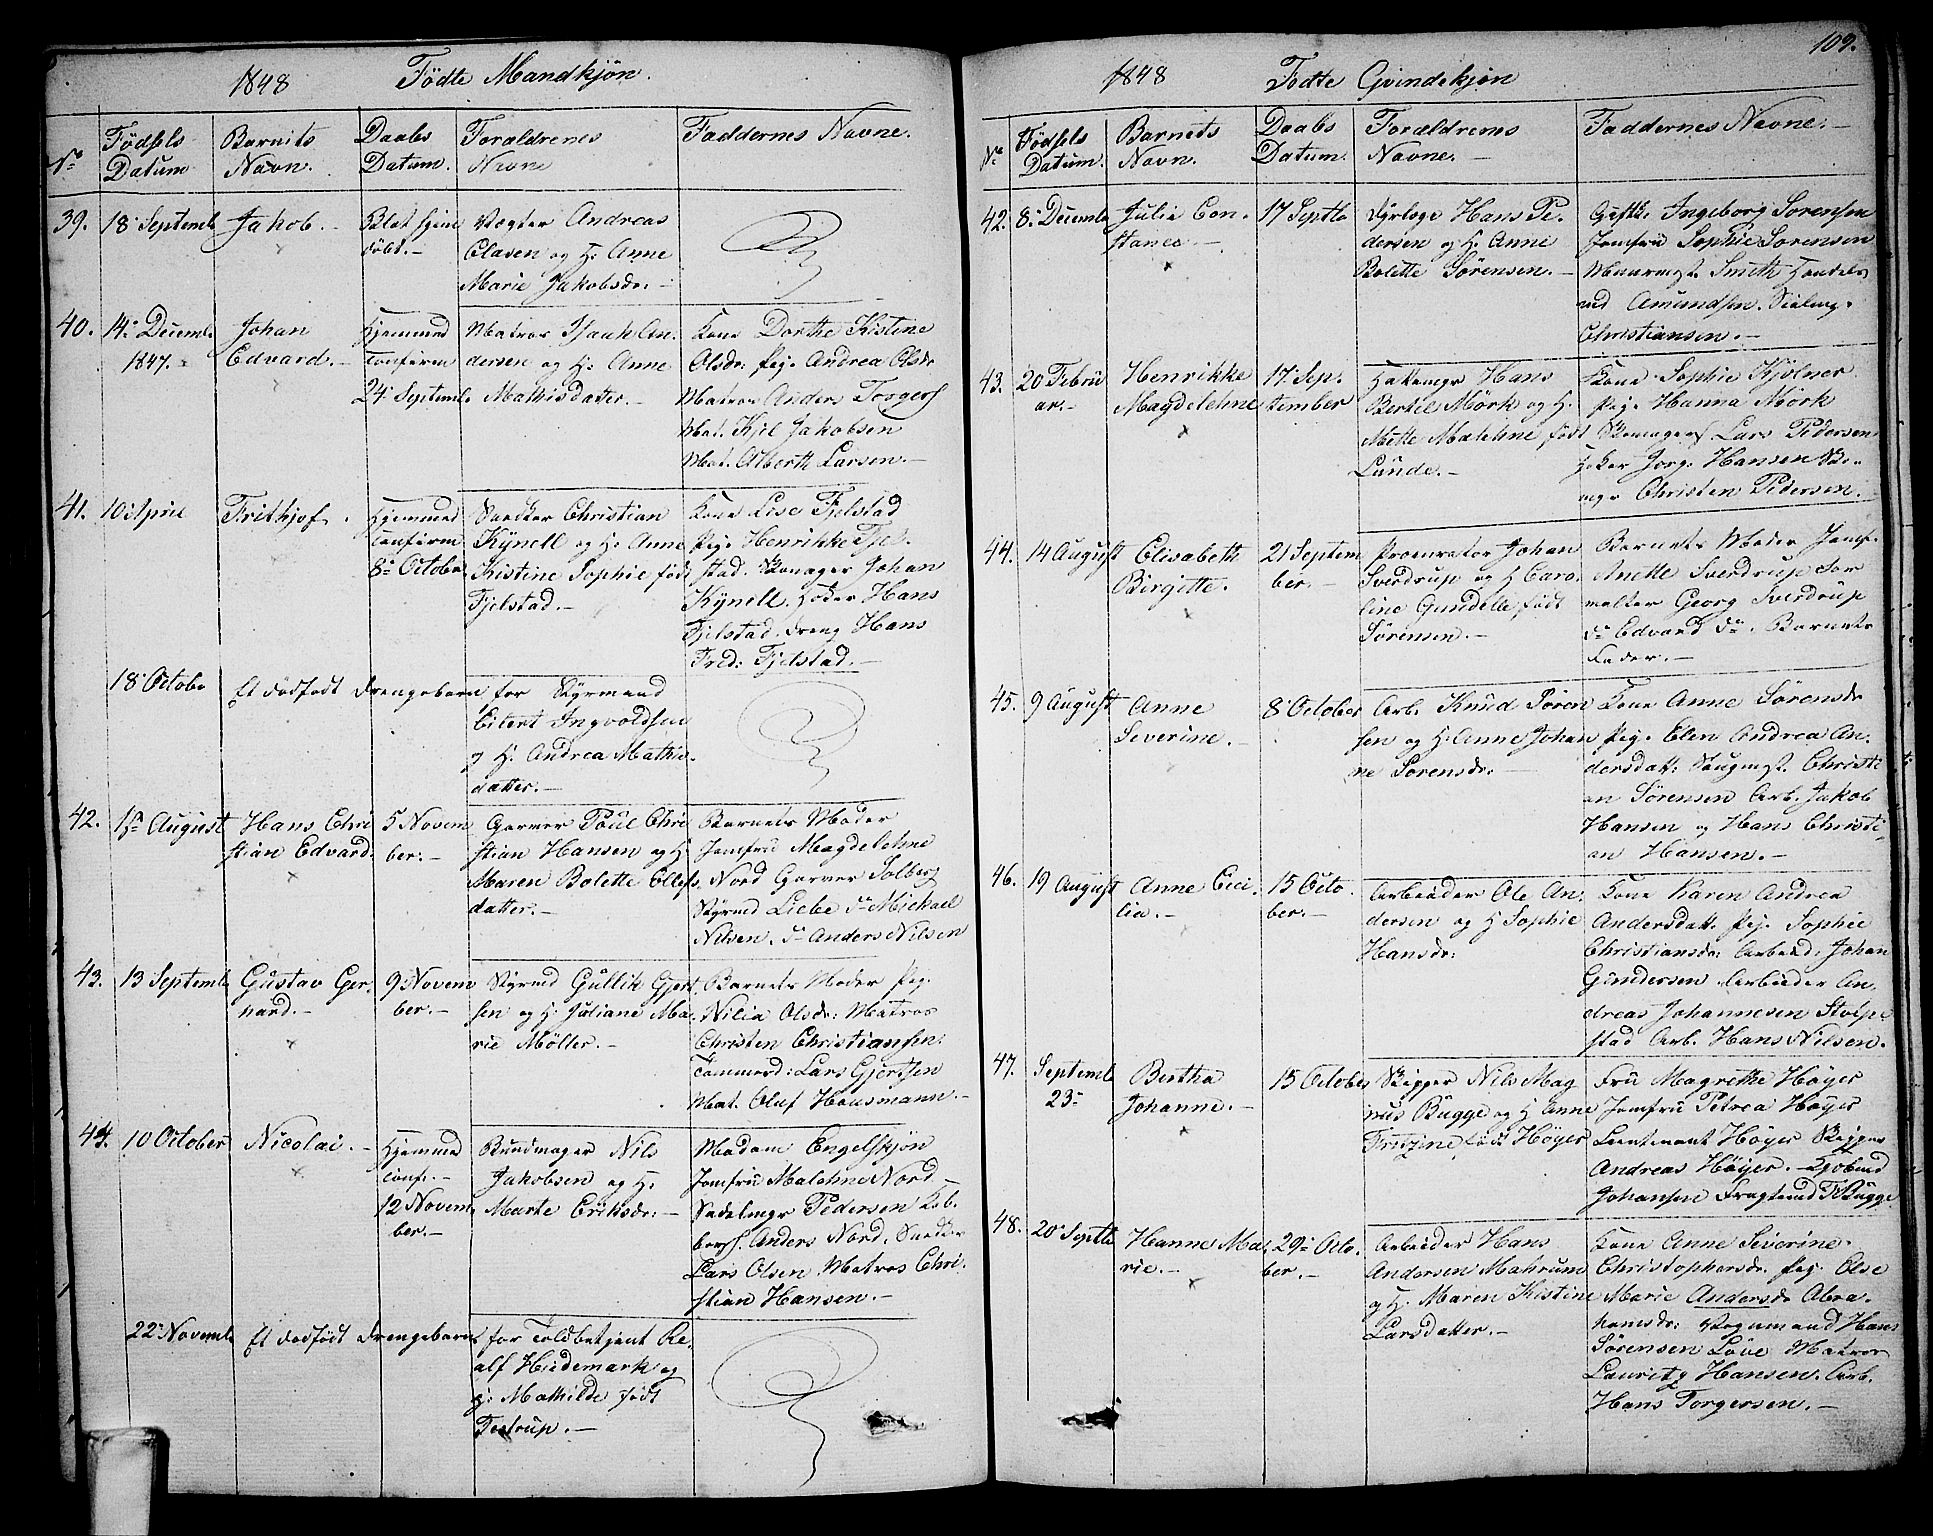 1848 Födte Mandkjön.
No
Födsels
Datum
Barnets
Navn.
Daabs
Datum.
Forældrenes
Navne
Faddernes Navne.
39. 18 Septemb
Jakob. -
Blot hjemme
döbt. -
Vægter Andreas
Clasen og H. Anne
Marie Jakobsdr: -
40. 14 Decemb
1847.
Johan
Edvard. -
Hjemmed
confirm
24 Septemb
Matros Isach An-
dersen og H. Anne
Mathisdatter. -
Kone Dorthe Kistine
Olsdr: Pig. Andrea Olsdr
Matros Anders Torgers
Mat. Kjel Jakobsen
Mat. Alberth Larsen. -
41. 10 April
Frithjof.
Hjemmed
confirm
8 Octobr
Snedker Christian
Kynell og H. Anne
Kistine Sophie födt
Fjelstad. -
Kone Lise Fjelstad
Pig. Henrikke Fjel-
stad. Skomager Johan
Kynell. Höker Hans
Fjelstad. Dreng Hans
Fred: Fjelstad. -
18 Octobr
Et dödfödt Drengebarn for Styrmand
Eilert Ingvoldsen
og H. Andrea Mathis-
datter. -
42. August
Hans Chri
stian Edvard.
5 Novem
ber. -
Garver Poul Chri
stian Hansen og H.
Maren Bolette Ellefs
datter. -
Barnets Moder
Jomfru Magdelehne
Nord Garver Solberg
Styrmd Liebe do Mickael
Nilsen. do Anders Nilsen
43. 13 Septemb
Gustav Ger-
hard. -
9 Novem
ber. -
Styrmd Gullik Gjert-
sen og H. Juliane Ma-
rie Möller. -
Barnets Moder Pig.
Nilia Olsdr: Matros
Christen Christiansen.
Tömmermd: Lars Gjertsen
Mat. Oluf Housmann. -
44. 10 October
Nicolai. -
Hjemmed
conf. -
12 Novem
ber. -
Bundmager Nils
Jakobsen og H.
Marte Eriksdr: -
Madam Engelskjön
Jomfru Malehne Nord
Sadelmgr Pedersen Kob-
bers. Anders Nord. Snedker
Lars Olsen. Matros Chri-
stian Hansen. -
22 Novemb
Et dödfödt Drengebarn for Toldbetjent
Hiedemark og
H. Mathilde födt
Testrup. -
109.
1848 Födte Qvindekjön
No
Födsels
Datum.
Barnets
Navn.
Daabs
Datum.
Forældrenes
Navne. -
Faddernes Navne. -
42. 8 Decemb
Julie Con-
stance. -
17 Septb
Dyrlæge Hans Pe-
dersen og H. Anne
Bolette Sörensen. -
Giftk. Ingeborg Sörensen
Jomfru Sophie Sörensen
Muurmgst. Smith Handels
md Amundsen. Seilmag.
Christiansen. -
43. 20 Febru
ar. -
Henrikke
Magdelehne
17 Sep-
tember
Hattemgr Hans
Bertel Mörk og H.
Mette Malehne födt
Lunde. -
Kone Sophie Kjölner
Pig. Hanna Mörk
Skomagers Lars Pedersen
Höker Jörg. Hansen
Christen Pedersen.
44. 14 August
Elisabeth
Birgitte.
21 Septem
ber. -
Procurator Johan
Sverdrup og H Caro-
line Gundelle födt
Sörensen. -
Barnets Moder Jomf.
Anette Sverdrup For
valter Georg Sverdrup
do Edvard do. Barnets
Fader. -
45. 9 August
Anne
Severine. -
8 October
Arb. Knud Sören
sen og H. Anne Johan
ne Sörensdr: -
Kone Anne Sörensdr
Pig. Elen Andrea An-
dersdatt: Skogmgst. Christi
an Sörensen Arb. Jakob
Hansen og Hans Christi-
an Hansen. -
46. 19 August
Anne Ceci-
lia. -
15 Octo
ber. -
Arbeider Ole An-
dersen og H Sophie
Hansdr:
Kone Karen Andrea
Andersdatt. Pig. Sophie
Christiansdr: Arbeid. Johan
Gundersen Arbeider An-
dreas Johannesen Stolpe
stad Arb. Hans Nilsen.
47. Septemb
23
Bertha
Johanne. -
15 October
Skipper Nils Mag
nus Bugge og H Anne
Fritzine födt Höyer
Fru Magrethe Höyer
Jomfru Petrea Höyer
Lieutenant Höyer Skipper
Andreas Höyer. - Kjöbmd
Johansen Fragtemd F. Bugge
48. 20 Septb
Hanne Ma-
rie. -
29 Octo-
ber. -
Arbeider Hans
Andersen Mahrum
og H. Maren Kistine
Larsdatter. -
Kone Anne Severine
Christophersdr. Pig. Else
Marie Andersdr Abra-
hamsdr: Vognmand Hans
Sörensen Löve Matros
Lauritz Hansen. Arb.
Hans Torgersen. -